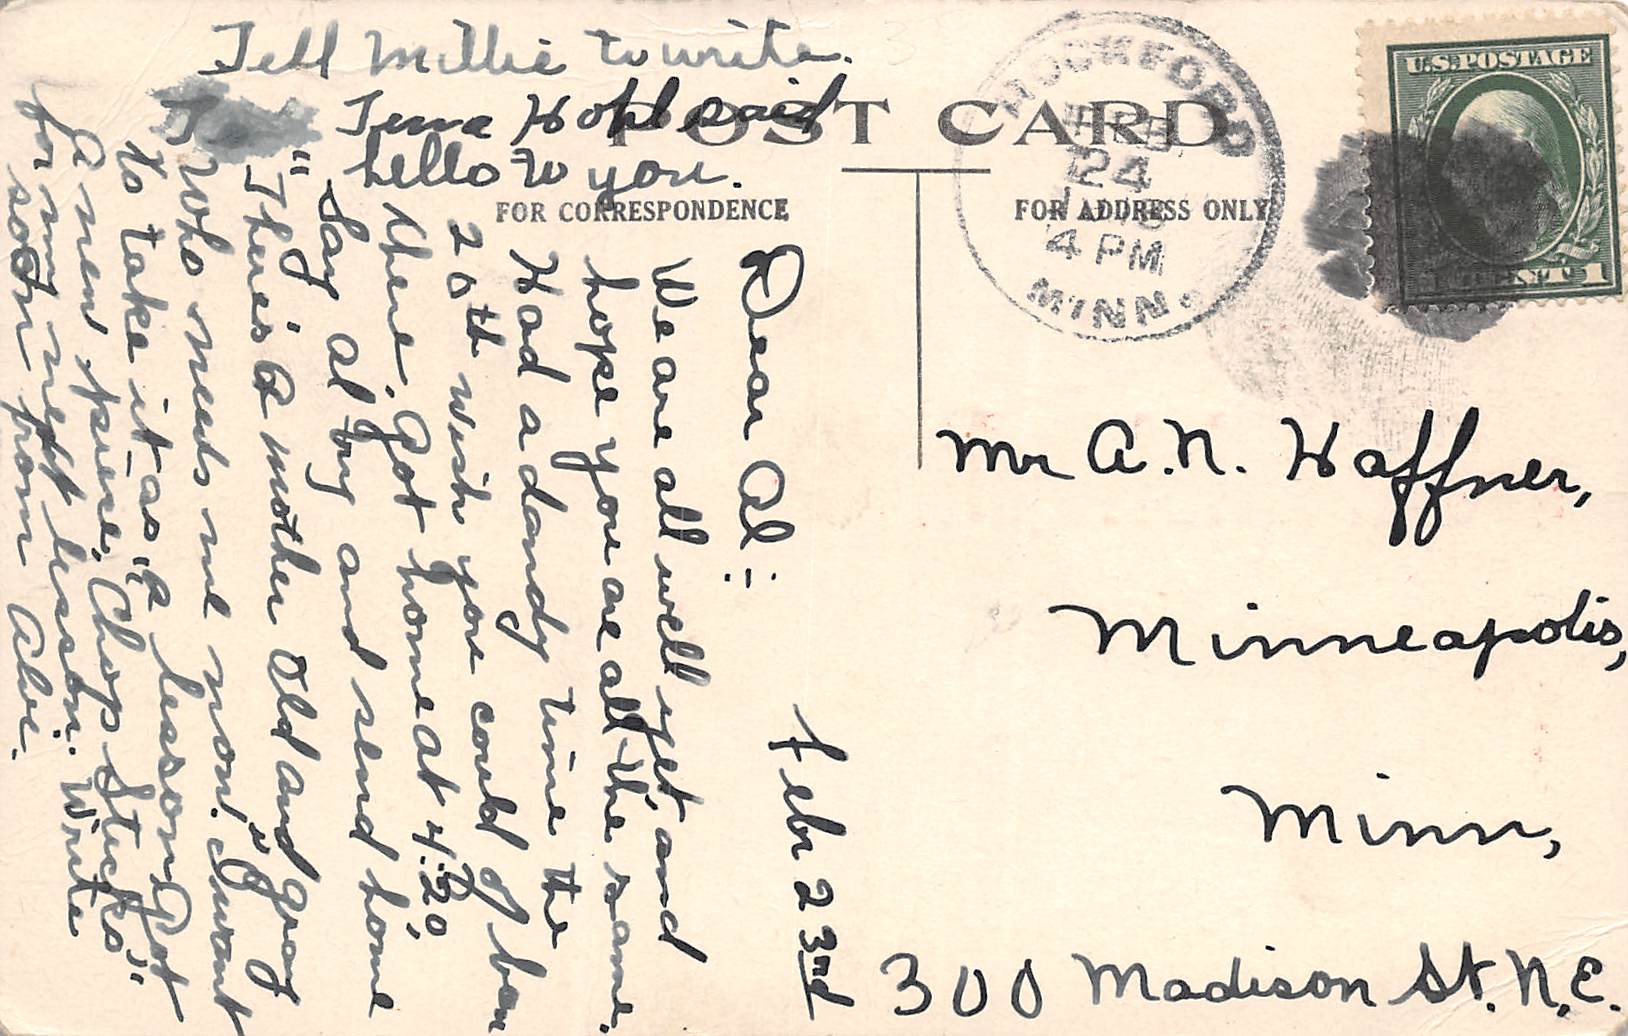 Tell Millie to write.
Tena Hohl said
hello to you.
POST CARD
FOR CORRESPONDENCE
FOR ADDRESS ONLY
ROCKFORD
FEB
24
4 PM
MINN.
U.S. POSTAGE
1 CENT 1
Febr 23rd
Dear Al:-
We are all well yet, and
hope you are all the same.
Had a dandy time the
20th wish you could of ben
here. Got home at 4:20,
Say al try and send home
"There's a mother old and gray
who needs me now." I want
to take it as a lesson. Got
a new piece, "Chop Sticks,"
for my next lesson. Write
soon from Abe.
Mr A. N. Haffner,
Minneapolis,
Minn,
300 Madison St. N.E.